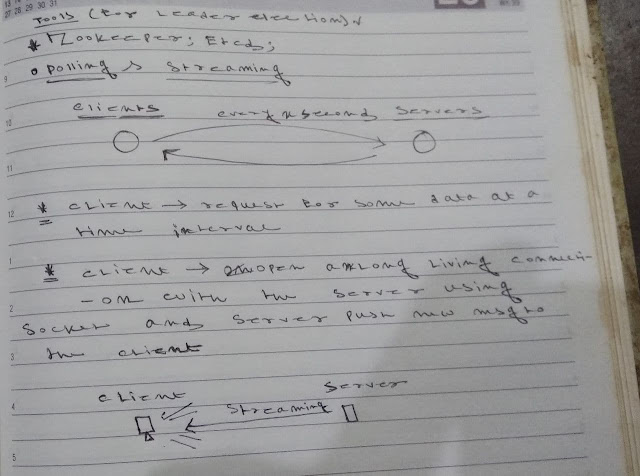 27 28 29 30 31
Tools (for Leader election)
* Zookeeper; Etcd;
• Polling & Streaming
9
10
clients every n second servers
11
12
* client → request for some data at a
time interval
1
* client → open a long living connecti-
2
-on with the server using
Socket and server push new msg to
3
the client
4
client server
streaming
5